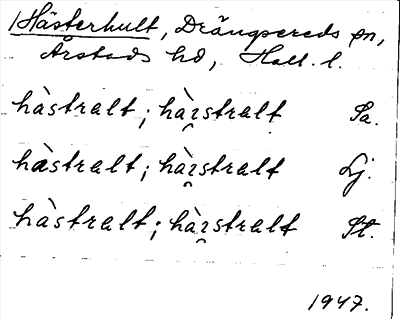 Hästerhult, Drängsereds sn,
Årstads hd, Hall. l.
hàstralt; hàrstralt Sa.
hàstralt; hàrstralt Lj.
hàstralt; hàrstralt St.
1947.